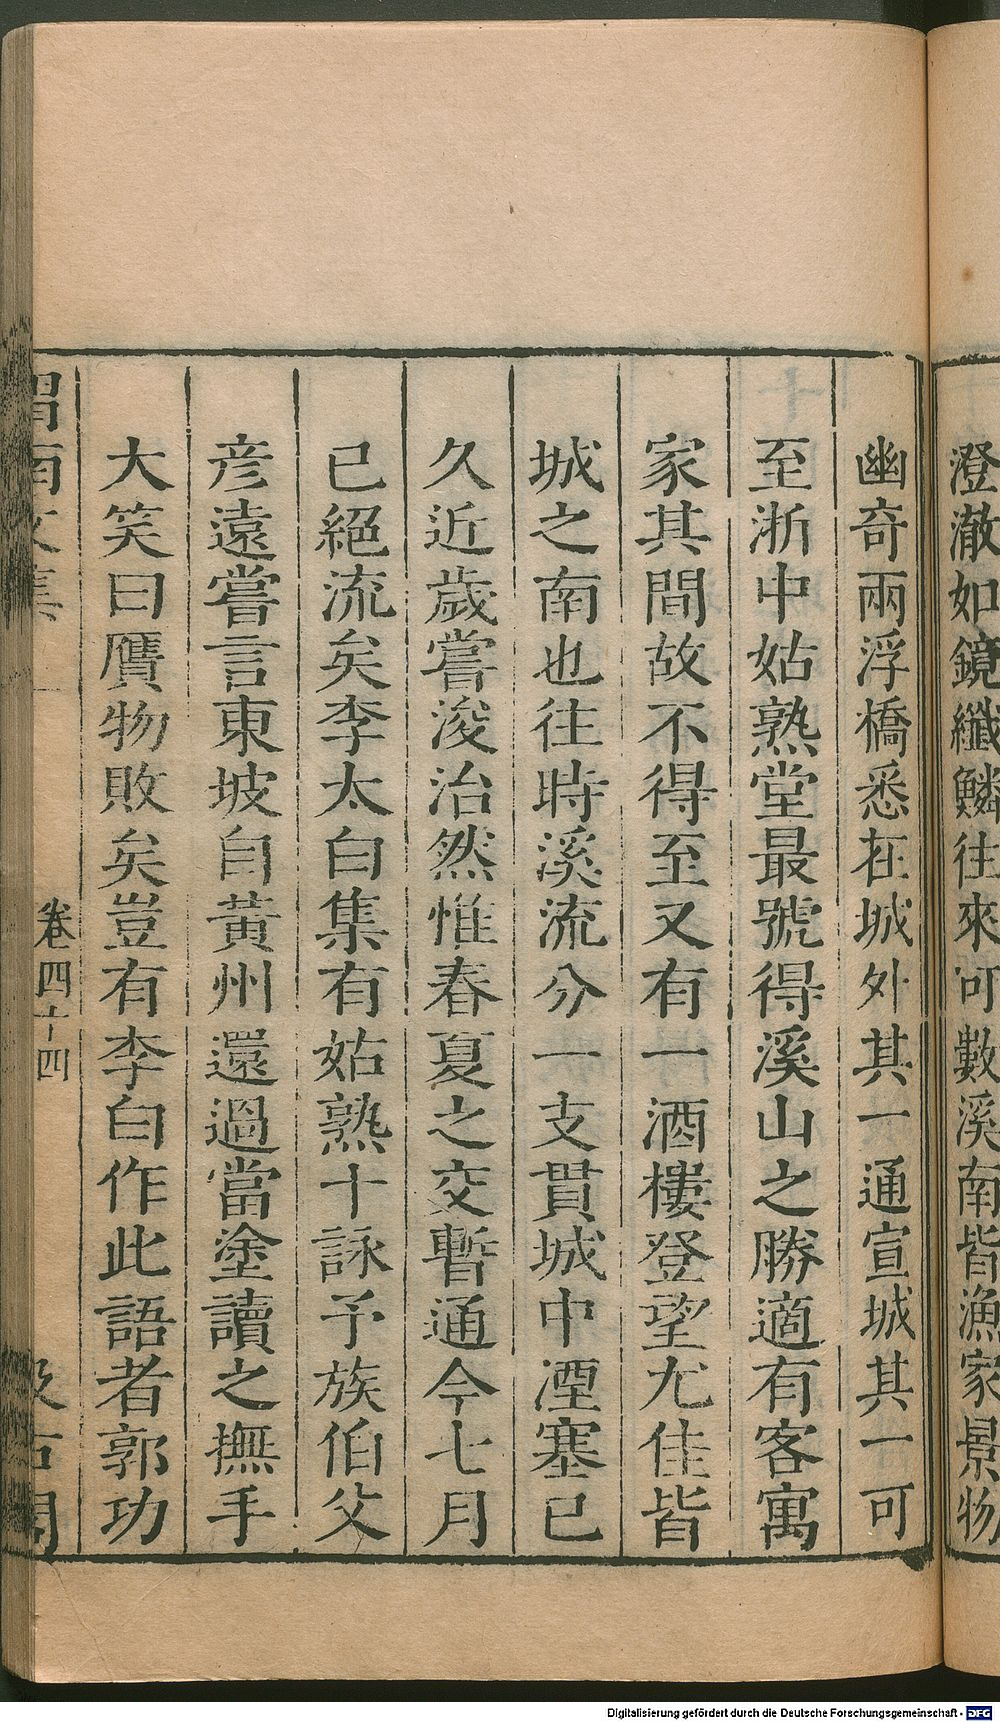 澄澈如鏡纖鱗往來可數溪南皆漁家景物
幽奇兩浮橋悉在城外其一通宣城其一可
至浙中姑熟堂最號得溪山之勝適有客寓
家其間故不得至又有一酒樓登望尤佳皆
城之南也往時溪流分一支貫城中湮塞已
久近歲嘗浚治然惟春夏之交暫通今七月
已絕流矣李太白集有姑熟十詠予族伯父
彥遠嘗言東坡自黃州還過當塗讀之撫手
大笑曰贗物敗矣豈有李白作此語者郭功
渭南文集 卷四十四 汲古閣
Digitalisierung gefördert durch die Deutsche Forschungsgemeinschaft - DFG